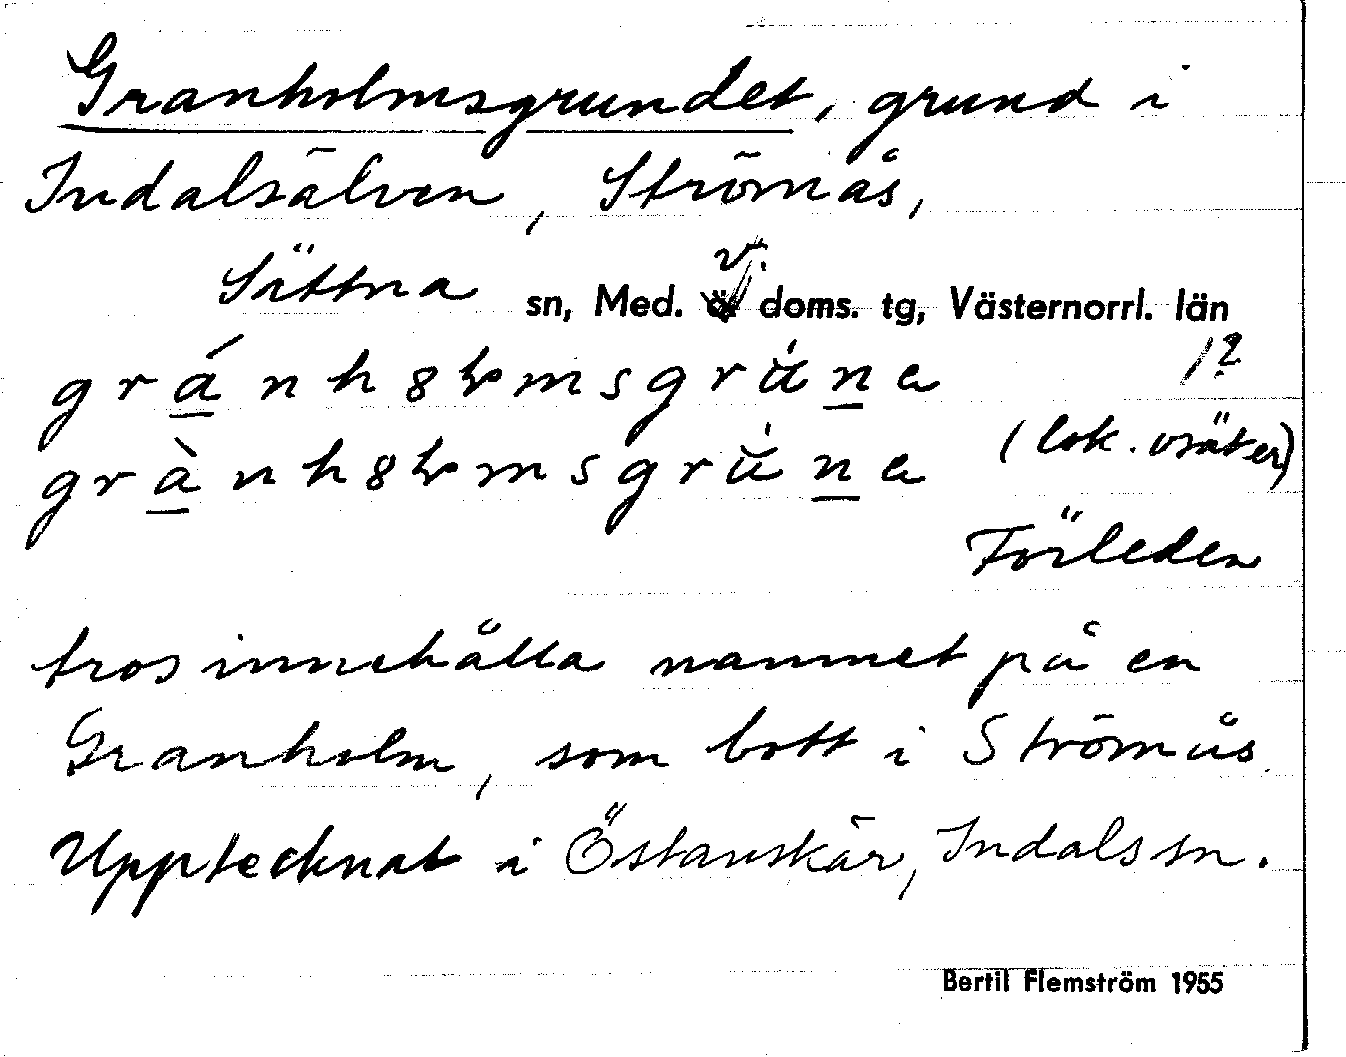 Granholmsgrundet, grund i
Indalsälven, Strömås,
Sättna sn, Med. v. doms. tg, Västernorrl. län
gránhɷłmsgrúna 1?
grànhɷłmsgrúna (lok. osäker)
Förleden
tros innehålla namnet på en
Granholm, som bott i Strömås
Upptecknat i Östanskär, Indals sn.
Bertil Flemström 1955